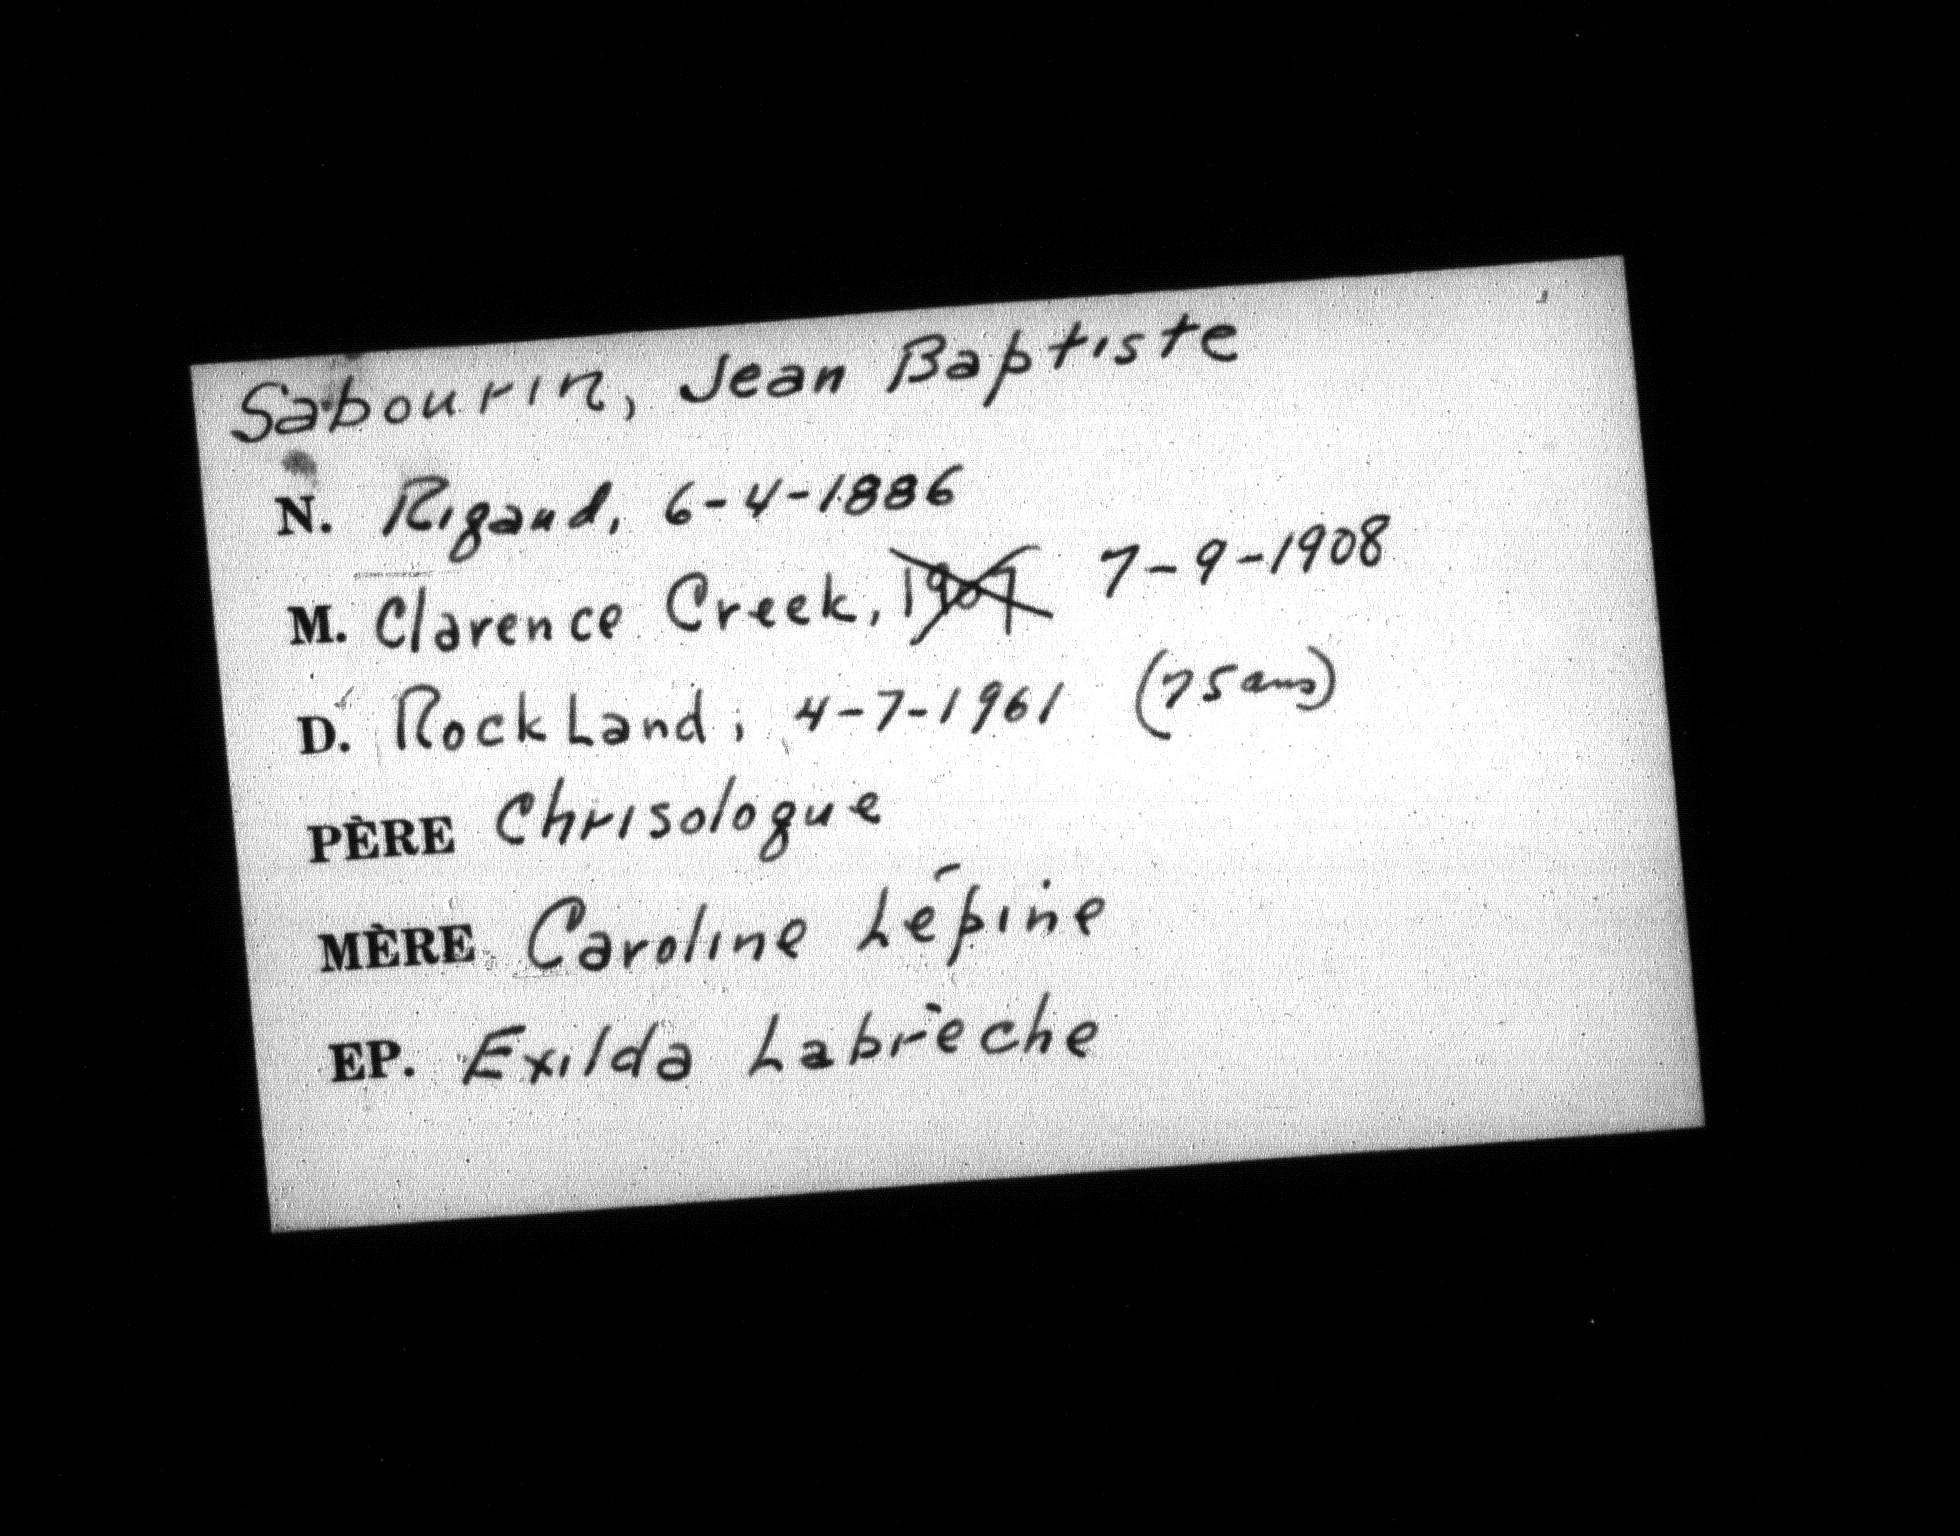 Sabourin, Jean Baptiste
N. Rigaud, 6-4-1886
M. Clarence Creek, 1907 7-9-1908
D. RockLand, 4-7-1961 (75 ans)
PÈRE Chrisologue
MÈRE Caroline Lépine
EP. Exilda Labrèche